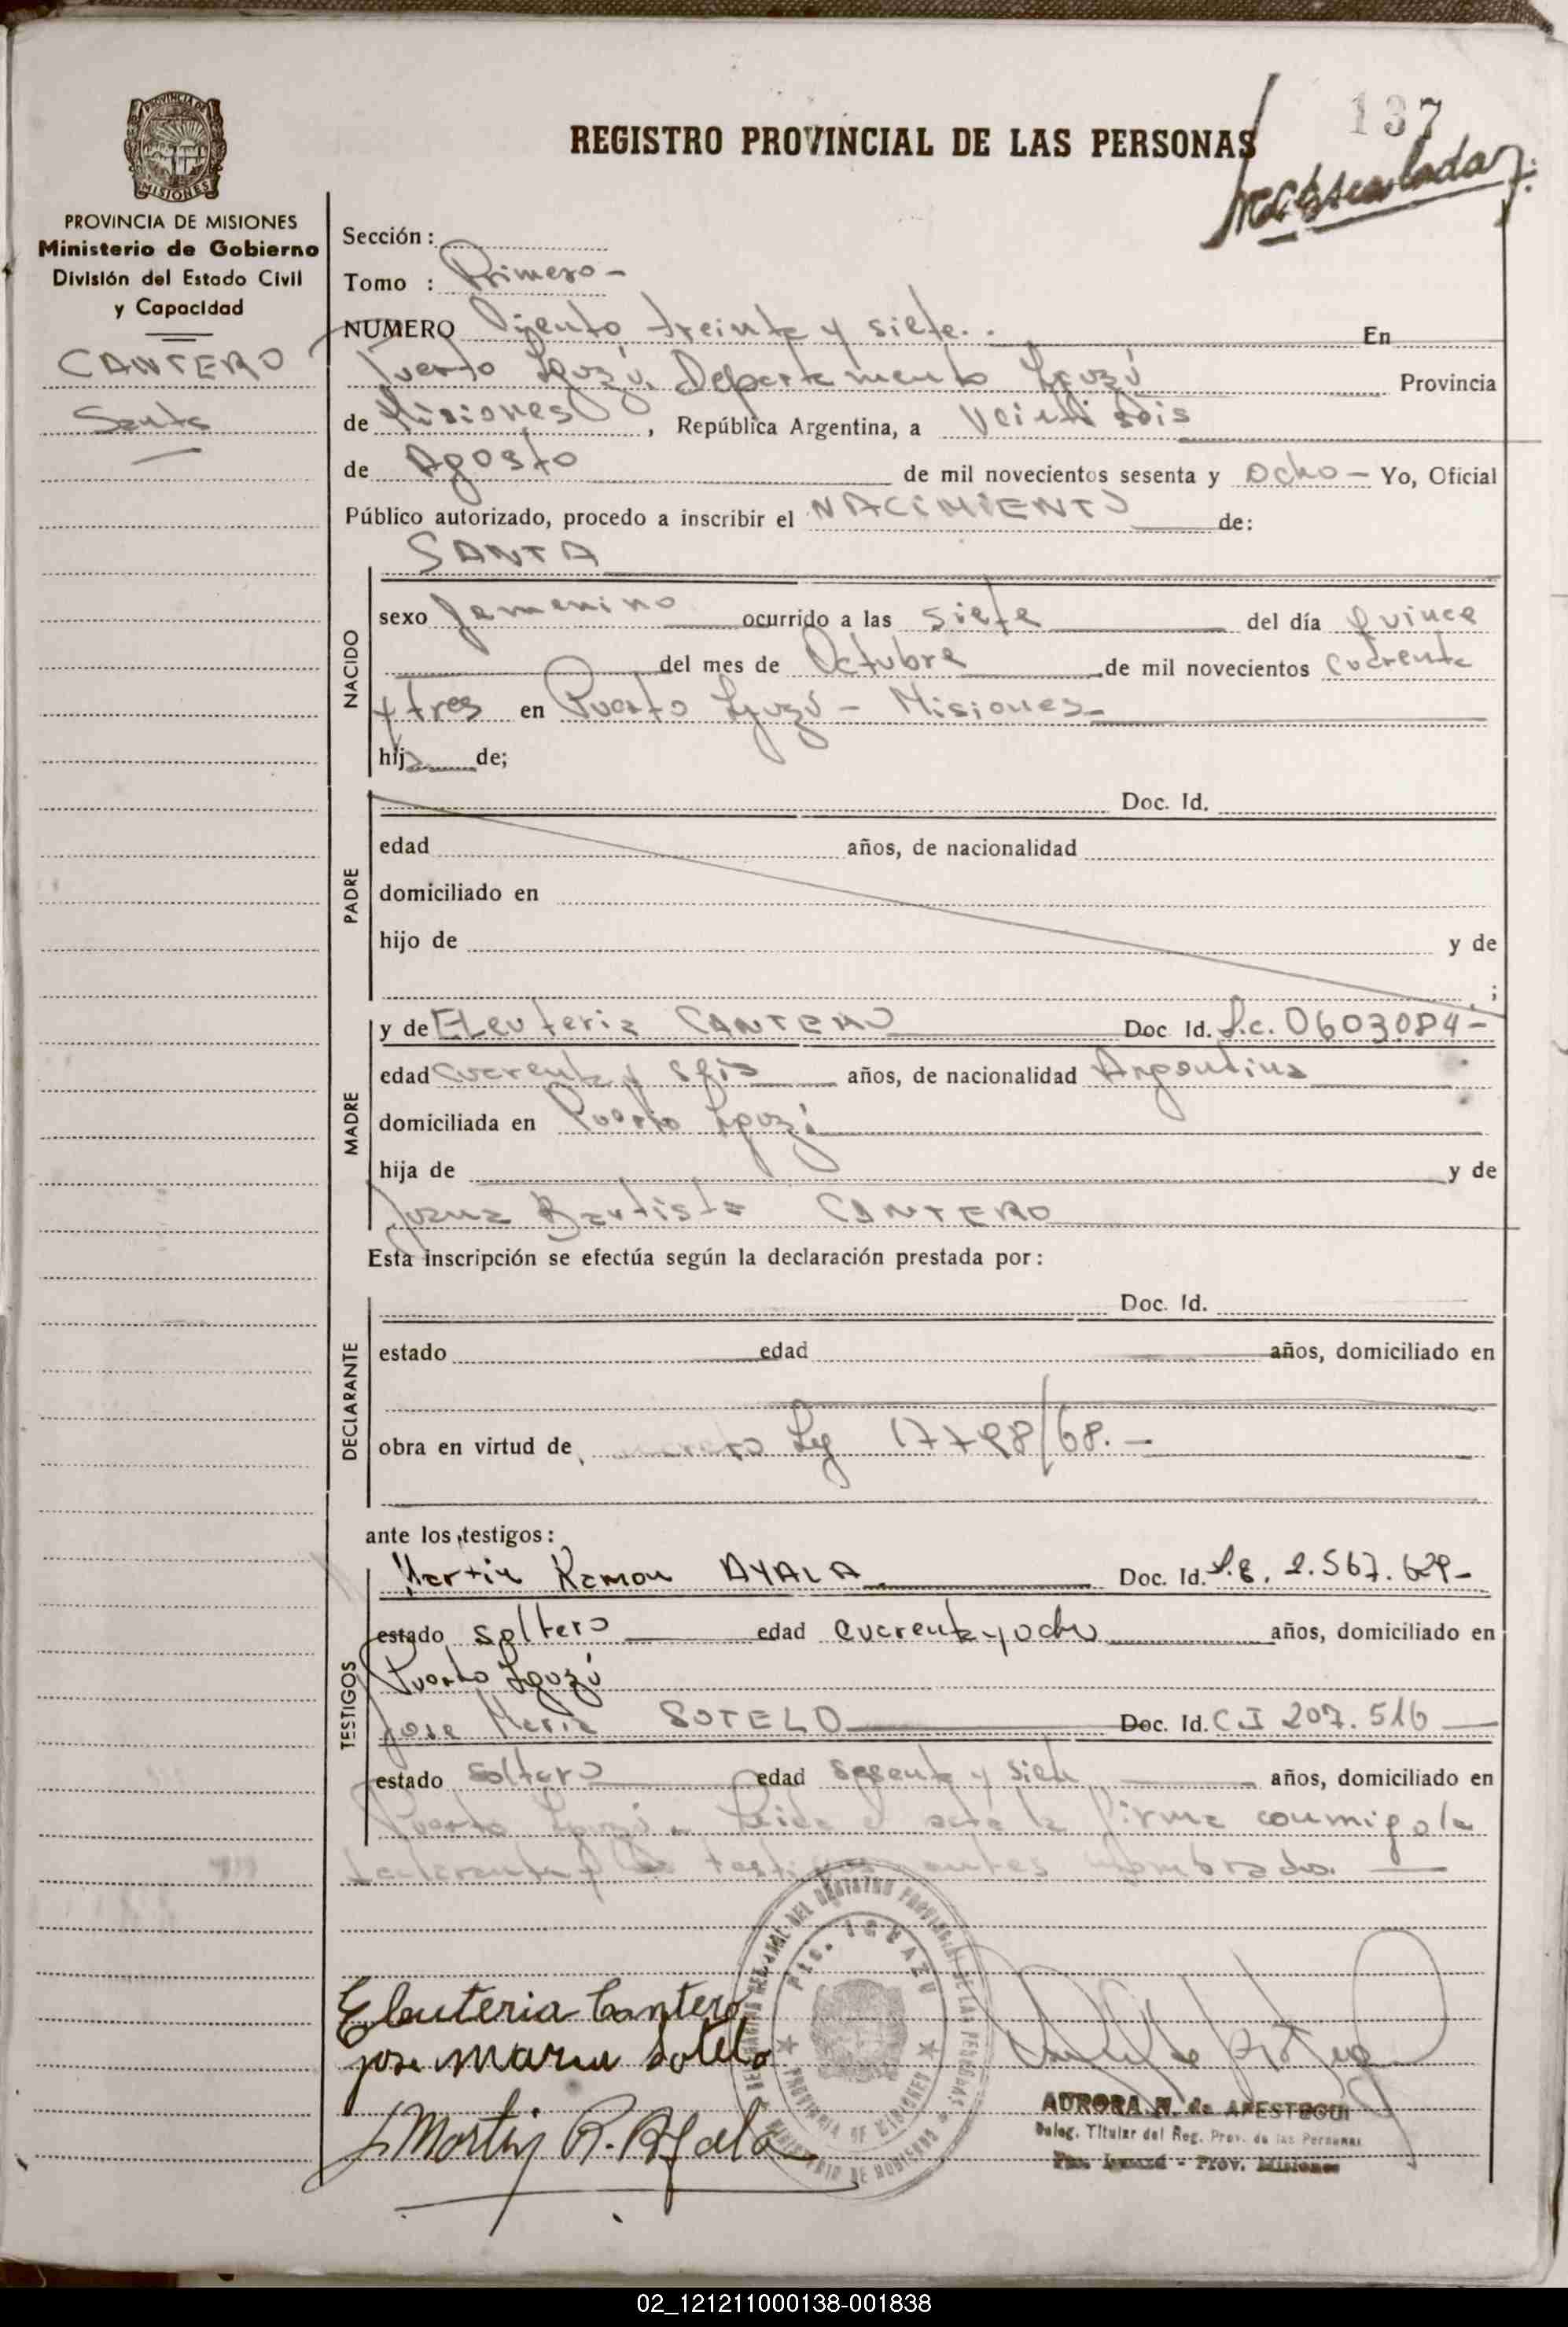 137
REGISTRO PROVINCIAL DE LAS PERSONAS
PROVINCIA DE MISIONES
Ministerio de Gobierno
División del Estado Civil
y Capacidad
CANTERO
Santa
Sección :
Tomo : Primero -
NUMERO Ciento treinta y siete. . En
Puerto Iguazú, Departamento Iguazú Provincia
de Misiones , República Argentina, a veintiséis
de Agosto de mil novecientos sesenta y ocho - Yo, Oficial
Público autorizado, procedo a inscribir el NACIMIENTO de:
SANTA
NACIDO
sexo femenino ocurrido a las siete del día quince
del mes de Octubre de mil novecientos cuarenta
y tres en Puerto Iguazú - Misiones -
hija de;
PADRE
Doc. Id.
edad años, de nacionalidad
domiciliado en
hijo de y de
;
MADRE
y de Eleuteria CANTERO Doc Id. L.c. 0603.084 -
edad cuarenta y seis años, de nacionalidad Argentina
domiciliada en Puerto Iguazú
hija de y de
Juana Bautista CANTERO
Esta inscripción se efectúa según la declaración prestada por :
DECLARANTE
Doc. Id.
estado edad años, domiciliado en
obra en virtud de Ley 17798/68. -
ante los testigos :
TESTIGOS
Martin Ramon AYALA Doc. Id. L.E. 2.567.629 -
estado soltero edad cuarenta y ocho años, domiciliado en
Puerto Iguazú
Jose Maria SOTELO Doc. Id. C I 207.516
estado soltero edad sesenta y siete años, domiciliado en
Puerto Iguazú. Leida el acta la firma conmigo la
declarante y los testigos antes nombrados.
Eleuteria Cantero
jose maria sotelo
Martin R. Ayala
DELEGACION REGIONAL DEL REGISTRO PROVINCIAL DE LAS PERSONAS
PTO. IGUAZU
PROVINCIA DE MISIONES
MINISTERIO DE GOBIERNO
AURORA N. de ARESTEGUI
Deleg. Titular del Reg. Prov. de las Personas
Pto. Iguazú - Prov. Misiones
02_121211000138-001838